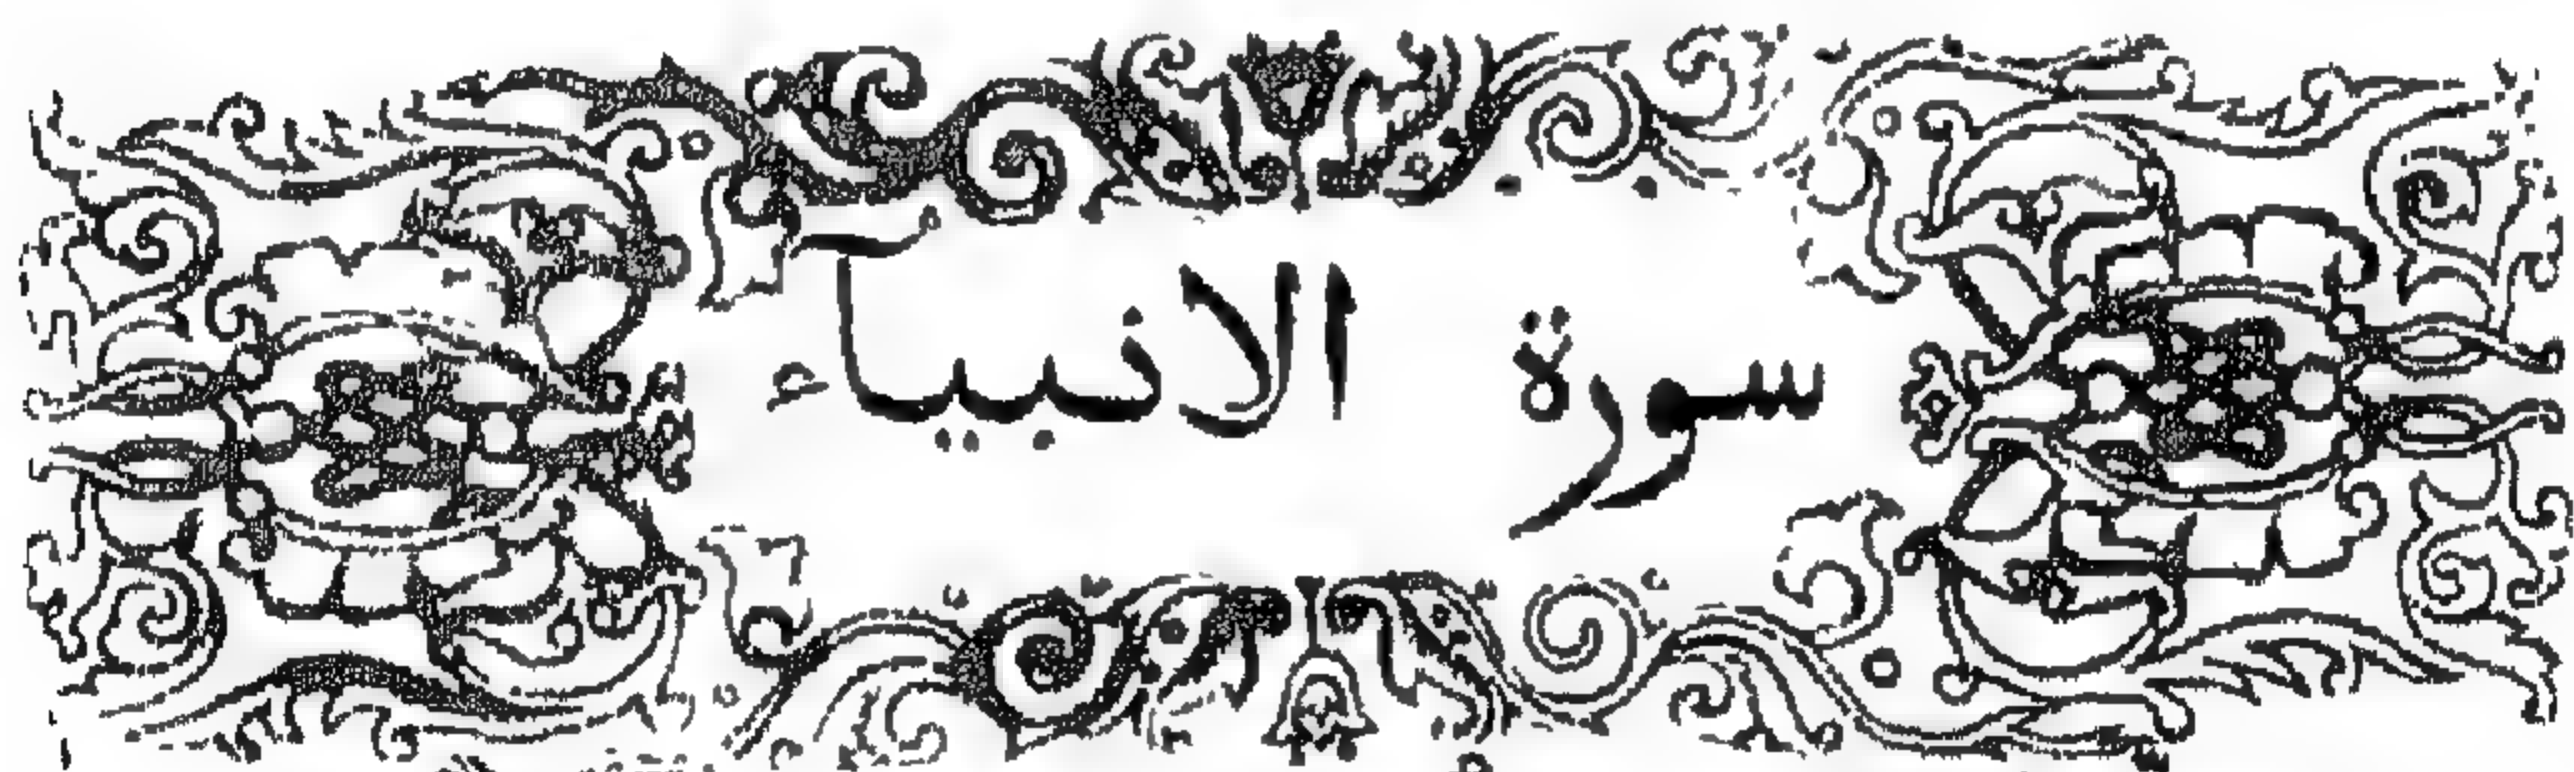 سورة الانبيآء